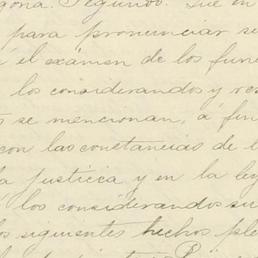 gona. Segundo. Que en
para pronunciar se
á el exámen de los fun
los considerandos y res
s se mencionan, á fin
con las constancias de
la justicia y en la ley
los considerandos su
los siguientes hechos ple